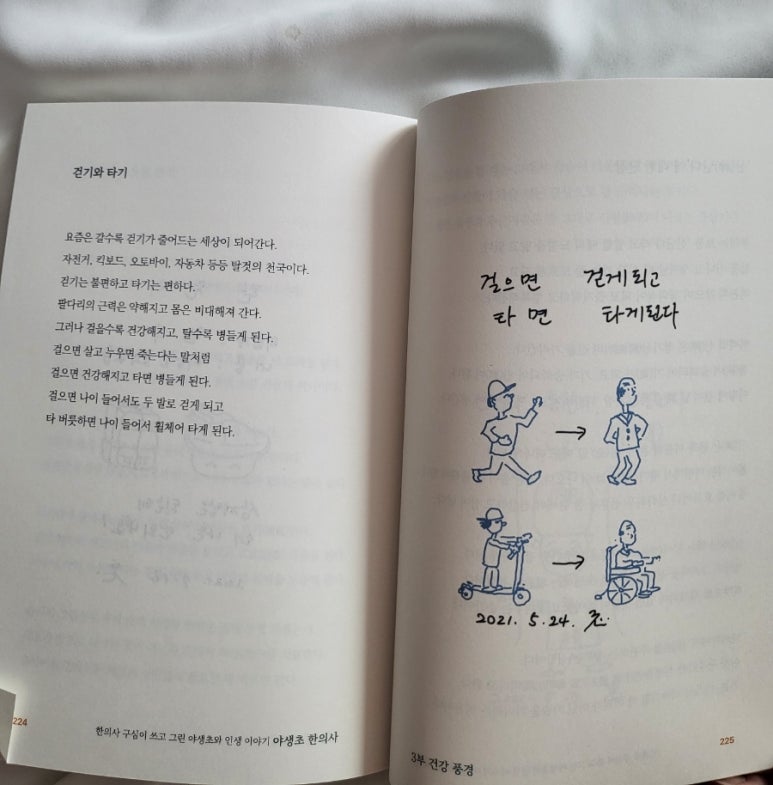 걷기와 타기
요즘은 갈수록 걷기가 줄어드는 세상이 되어간다.
자전거, 킥보드, 오토바이, 자동차 등등 탈것의 천국이다.
걷기는 불편하고 타기는 편하다.
팔다리의 근력은 약해지고 몸은 비대해져 간다.
그러나 걸을수록 건강해지고, 탈수록 병들게 된다.
걸으면 살고 누우면 죽는다는 말처럼
걸으면 건강해지고 타면 병들게 된다.
걸으면 나이 들어서도 두 발로 걷게 되고
타 버릇하면 나이 들어서 휠체어 타게 된다.
224
한의사 구심이 쓰고 그린 야생초와 인생 이야기 야생초 한의사
걸으면 걷게되고
타면 타게된다
2021. 5.24.
3부 건강 풍경
225